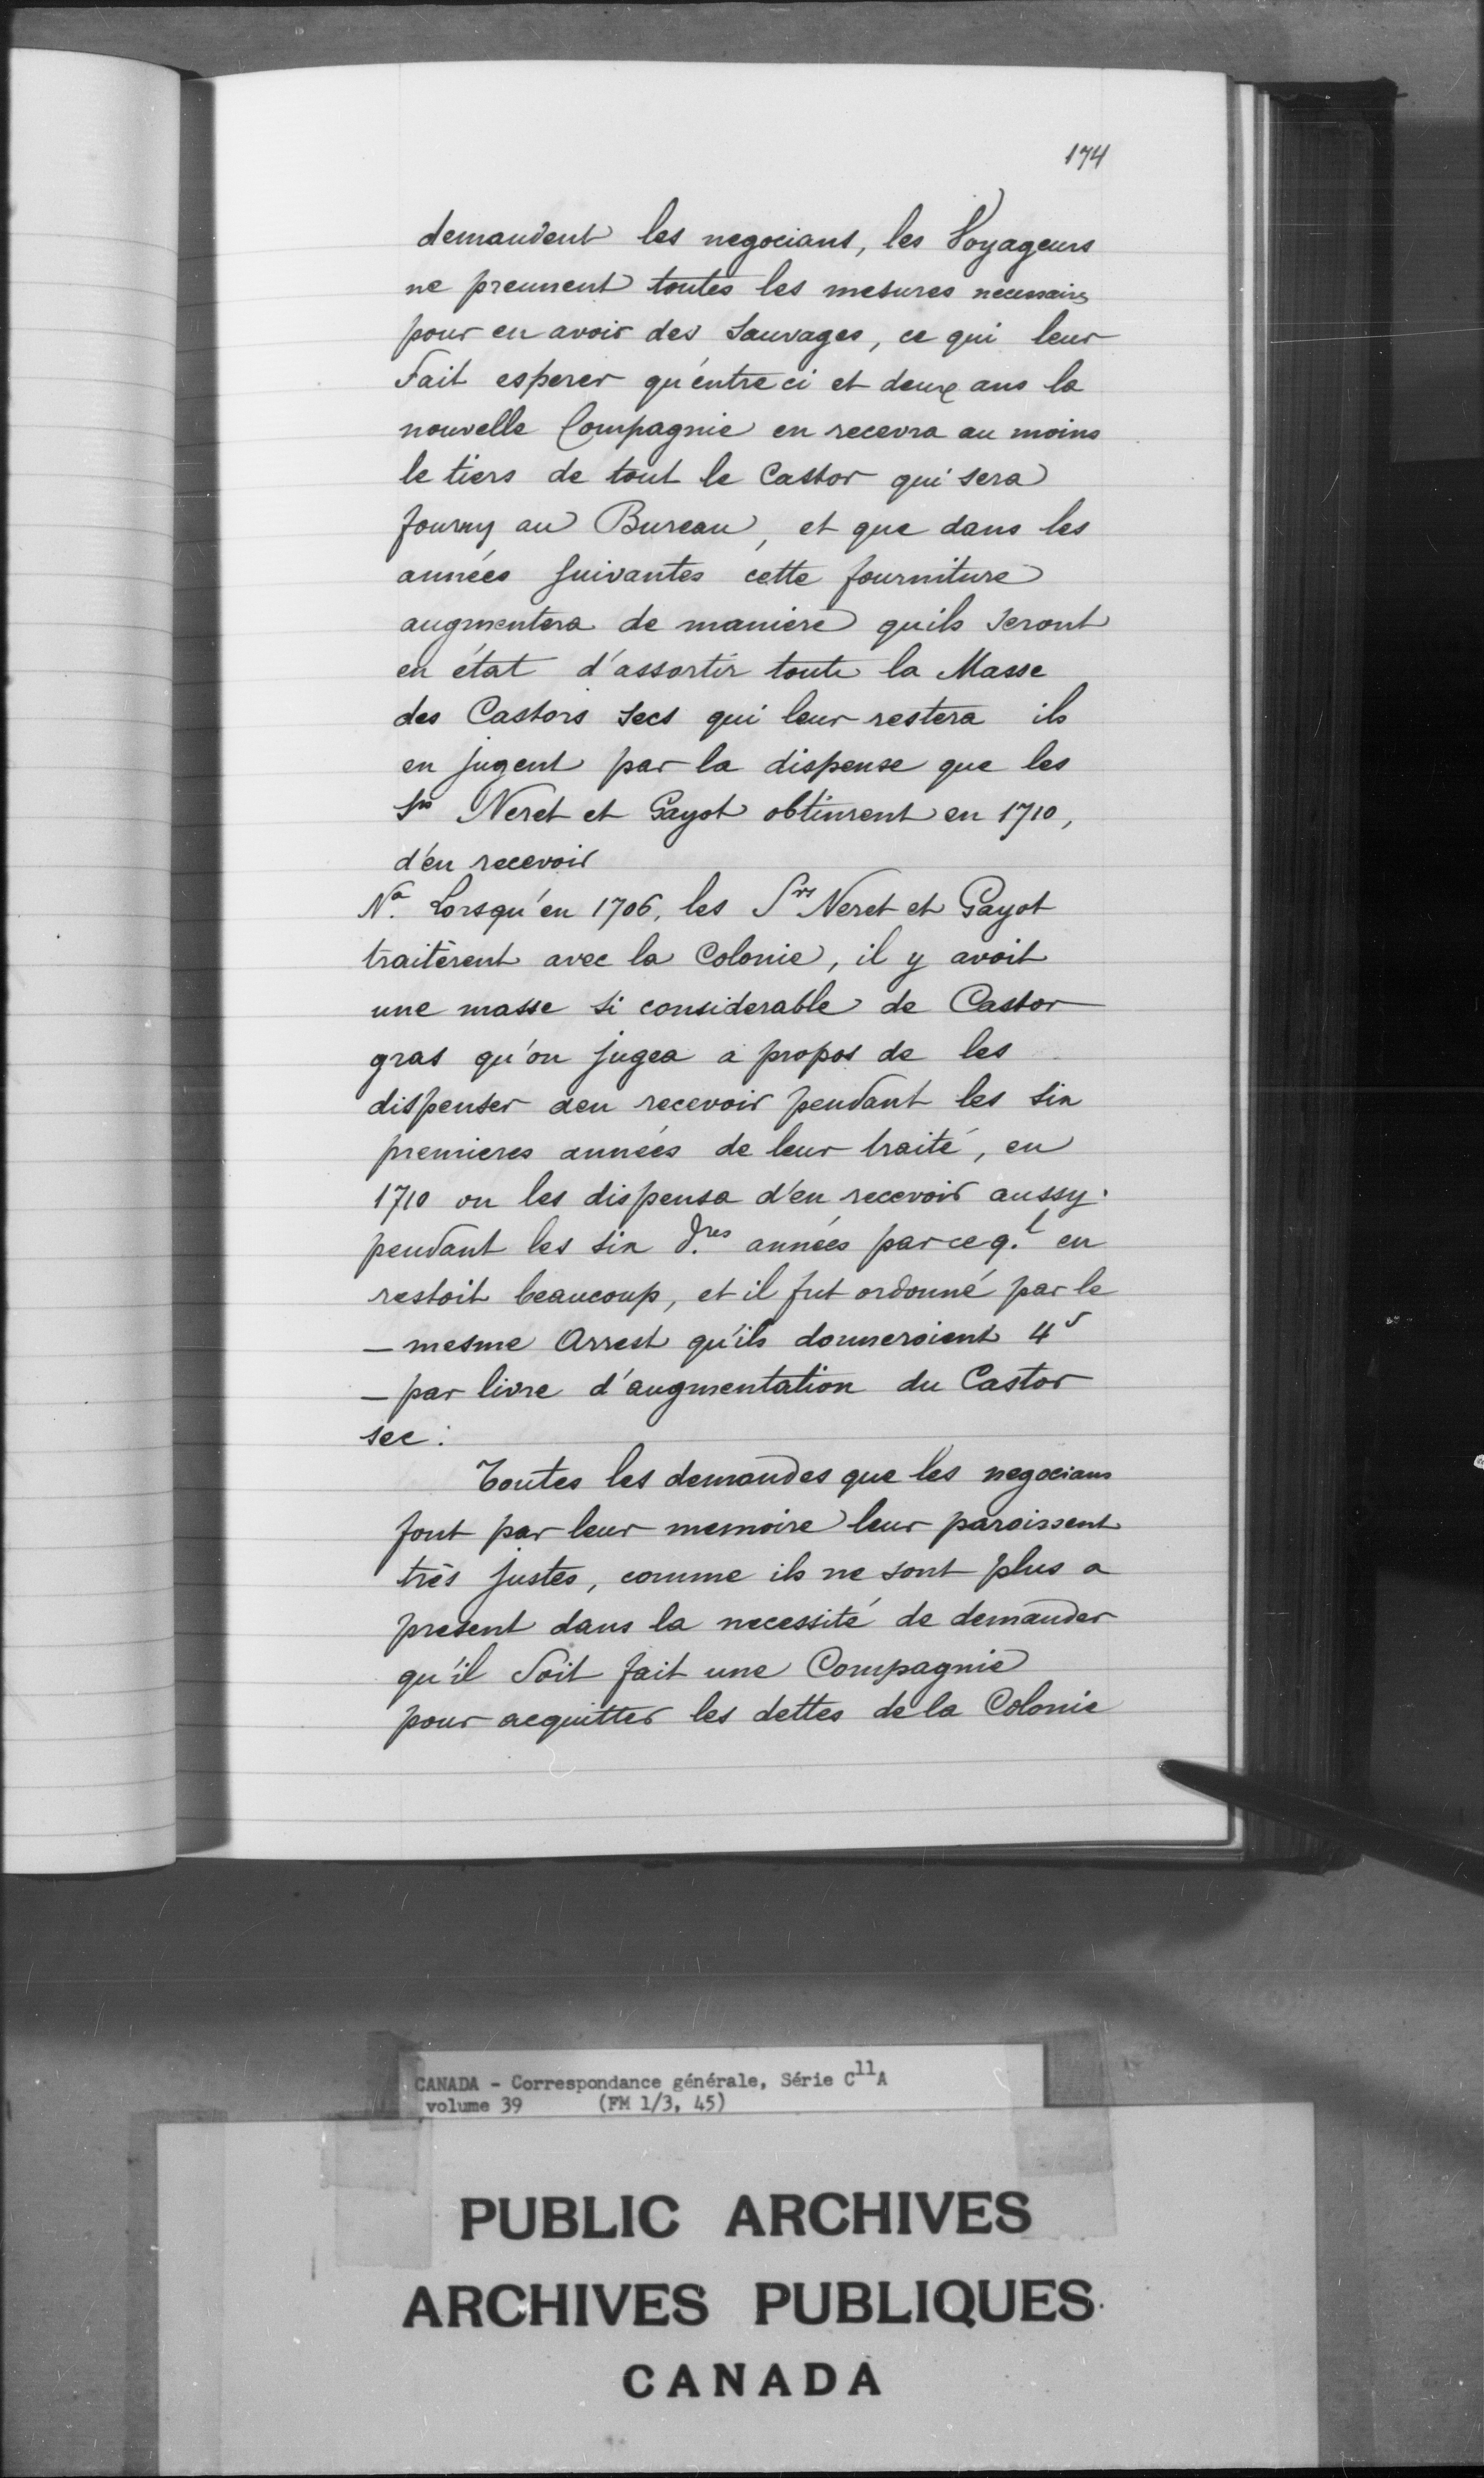 174
demandent les negocians, les Voyageurs
ne prennent toutes les mesures necessaires
pour en avoir des Sauvages, ce qui leur
fait esperer qu'entre ci et deux ans la
nouvelle Compagnie en recevra au moins
le tiers de tout le Castor qui sera
fourny au Bureau, et que dans les
années suivantes cette fourniture
augmentera de maniere quils seront
en état d'assortir toute la Masse
des Castors secs qui leur restera ils
en jugent par la dispense que les
Srs Neret et Gayot obtinrent en 1710,
d'en recevoir
Na. Lorsqu'en 1706, les Srs Neret et Gayot
traitèrent avec la Colonie, il y avoit
une masse si considerable de Castor
gras qu'on jugea a propos de les
dispenser den recevoir pendant les six
premieres années de leur traité, en
1710 on les dispensa d'en recevoir aussy.
pendant les six d.res années parce q.l en
restoit beaucoup, et il fut ordonné par le
— mesme Arrest qu'ils donneroient 4s
— par livre d'augmentation du Castor
sec.
Toutes les demandes que les negocians
font par leur memoire leur paroissent
très justes, comme ils ne sont plus a
present dans la necessité de demander
qu'il soit fait une Compagnie
pour acquitter les dettes de la Colonie
CANADA - Correspondance générale, Série C11A
volume 39 (FM 1/3, 45)
PUBLIC ARCHIVES
ARCHIVES PUBLIQUES
CANADA